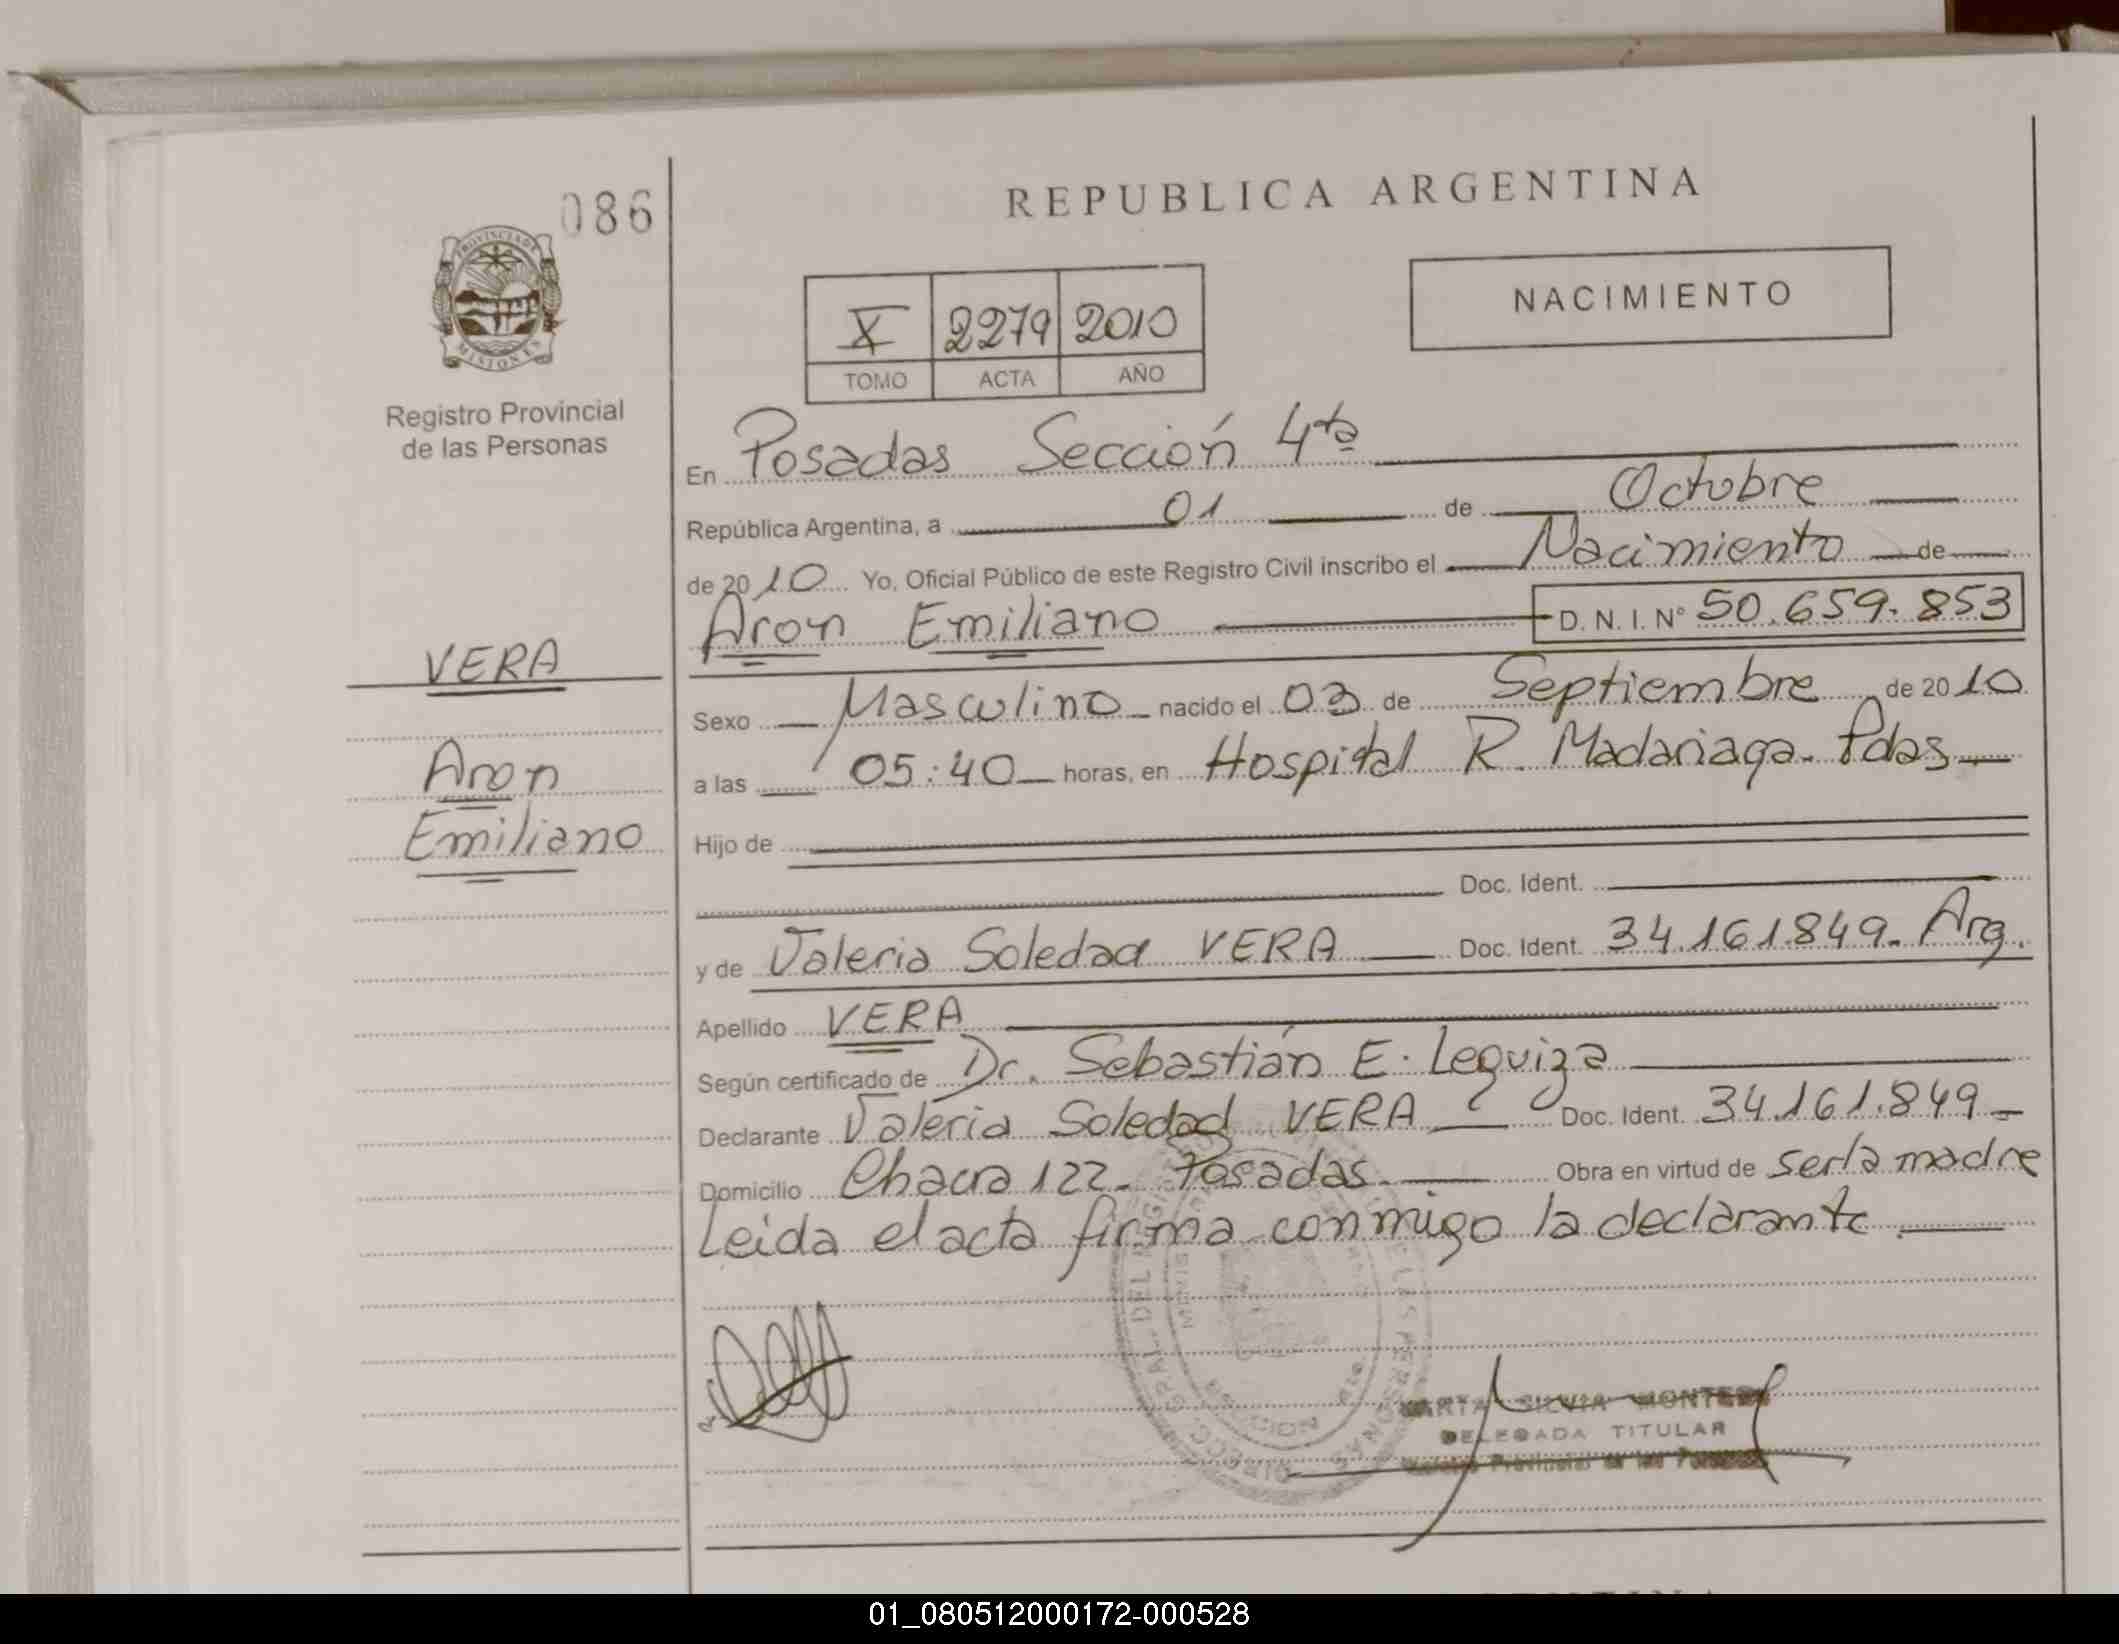 086
PROVINCIA DE
MISIONES
Registro Provincial
de las Personas
VERA
Aron
Emiliano
REPUBLICA ARGENTINA
NACIMIENTO
X 2279 2010
TOMO ACTA AÑO
En Posadas Sección 4ta
República Argentina, a 01 de Octubre
de 2010 Yo, Oficial Público de este Registro Civil inscribo el Nacimiento de
Aron Emiliano D. N. I. N° 50.659.853
Sexo Masculino nacido el 03 de Septiembre de 2010
a las 05:40 horas, en Hospital R. Madariaga. Pdas
Hijo de
Doc. Ident.
y de Valeria Soledad VERA Doc. Ident. 34.161.849. Arg.
Apellido VERA
Según certificado de Dr. Sebastián E. Leguiza
Declarante Valeria Soledad VERA Doc. Ident. 34.161.849
Domicilio Chacra 122. Posadas. Obra en virtud de ser la madre
Leida el acta firma conmigo la declarante.
SILVIA
DELEGADA TITULAR
01_080512000172-000528